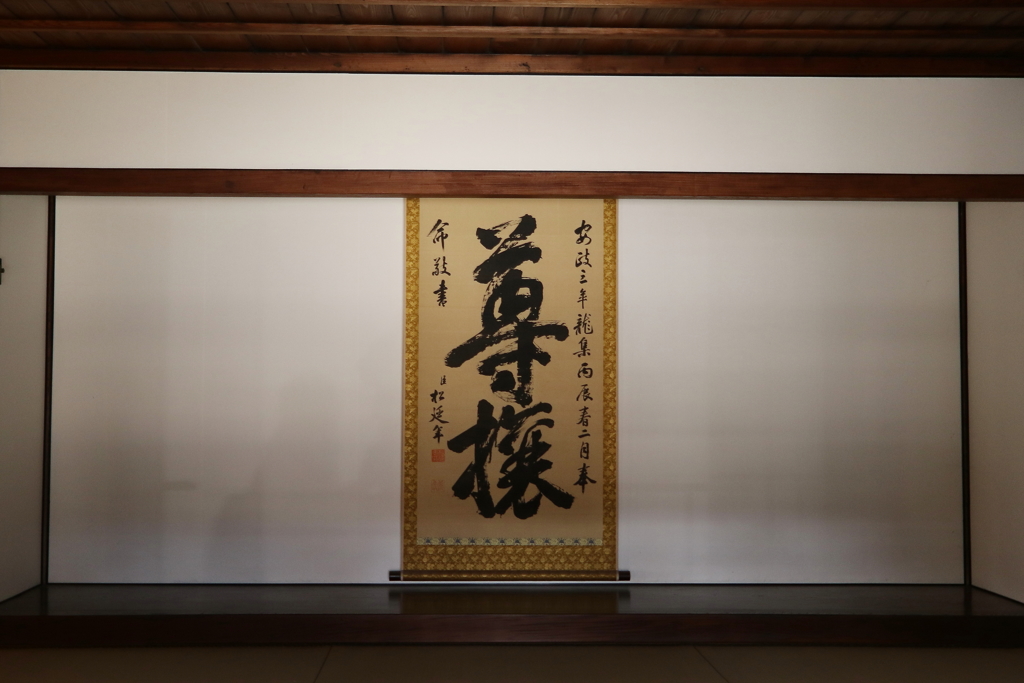 尊攘
安政三年龍集丙辰春二月奉
命敬書
臣松延年